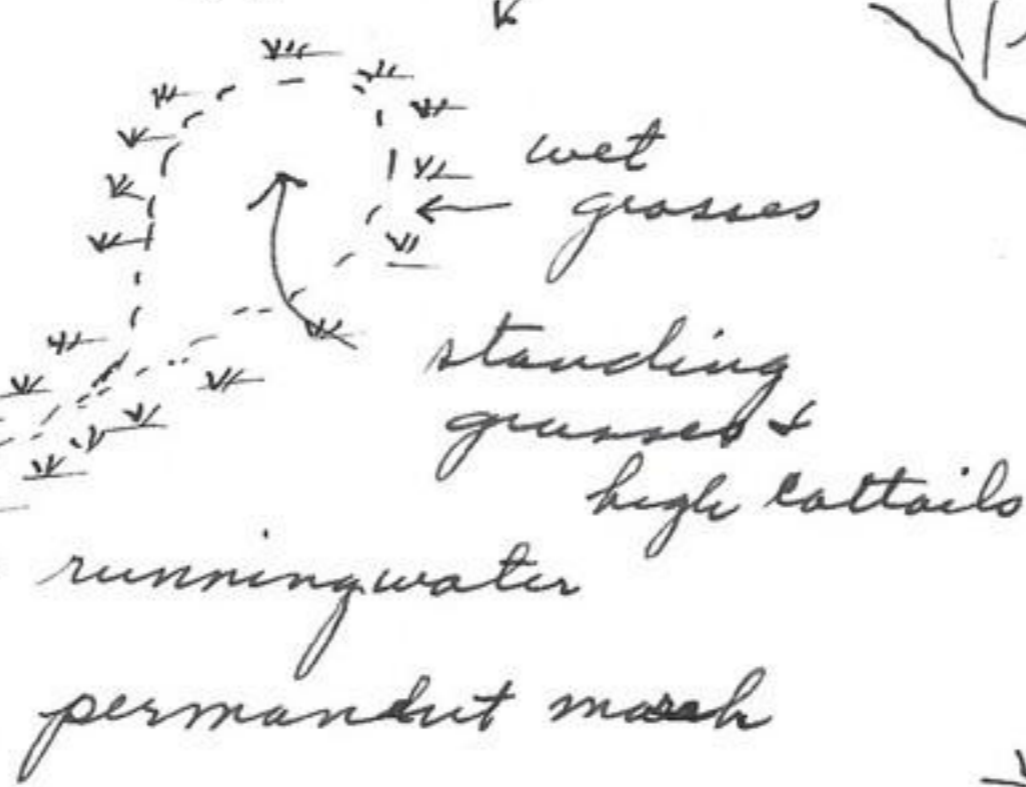 wet
grasses
standing
grasses &
high cattails
running water
permandut marsh